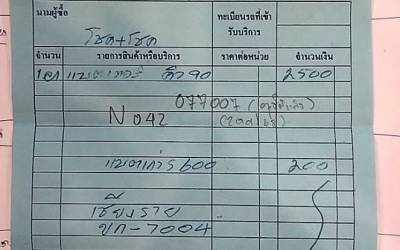 นามผู้ซื้อ
ทะเบียนรถที่เข้า
รับบริการ
โชค+โชค
จำนวน รายการสินค้าหรือบริการ ราคาต่อหน่วย จำนวนเงิน
แบตเตอรี่ 90 2500
077007
N042
600 200
เชียงราย
ขก-7004